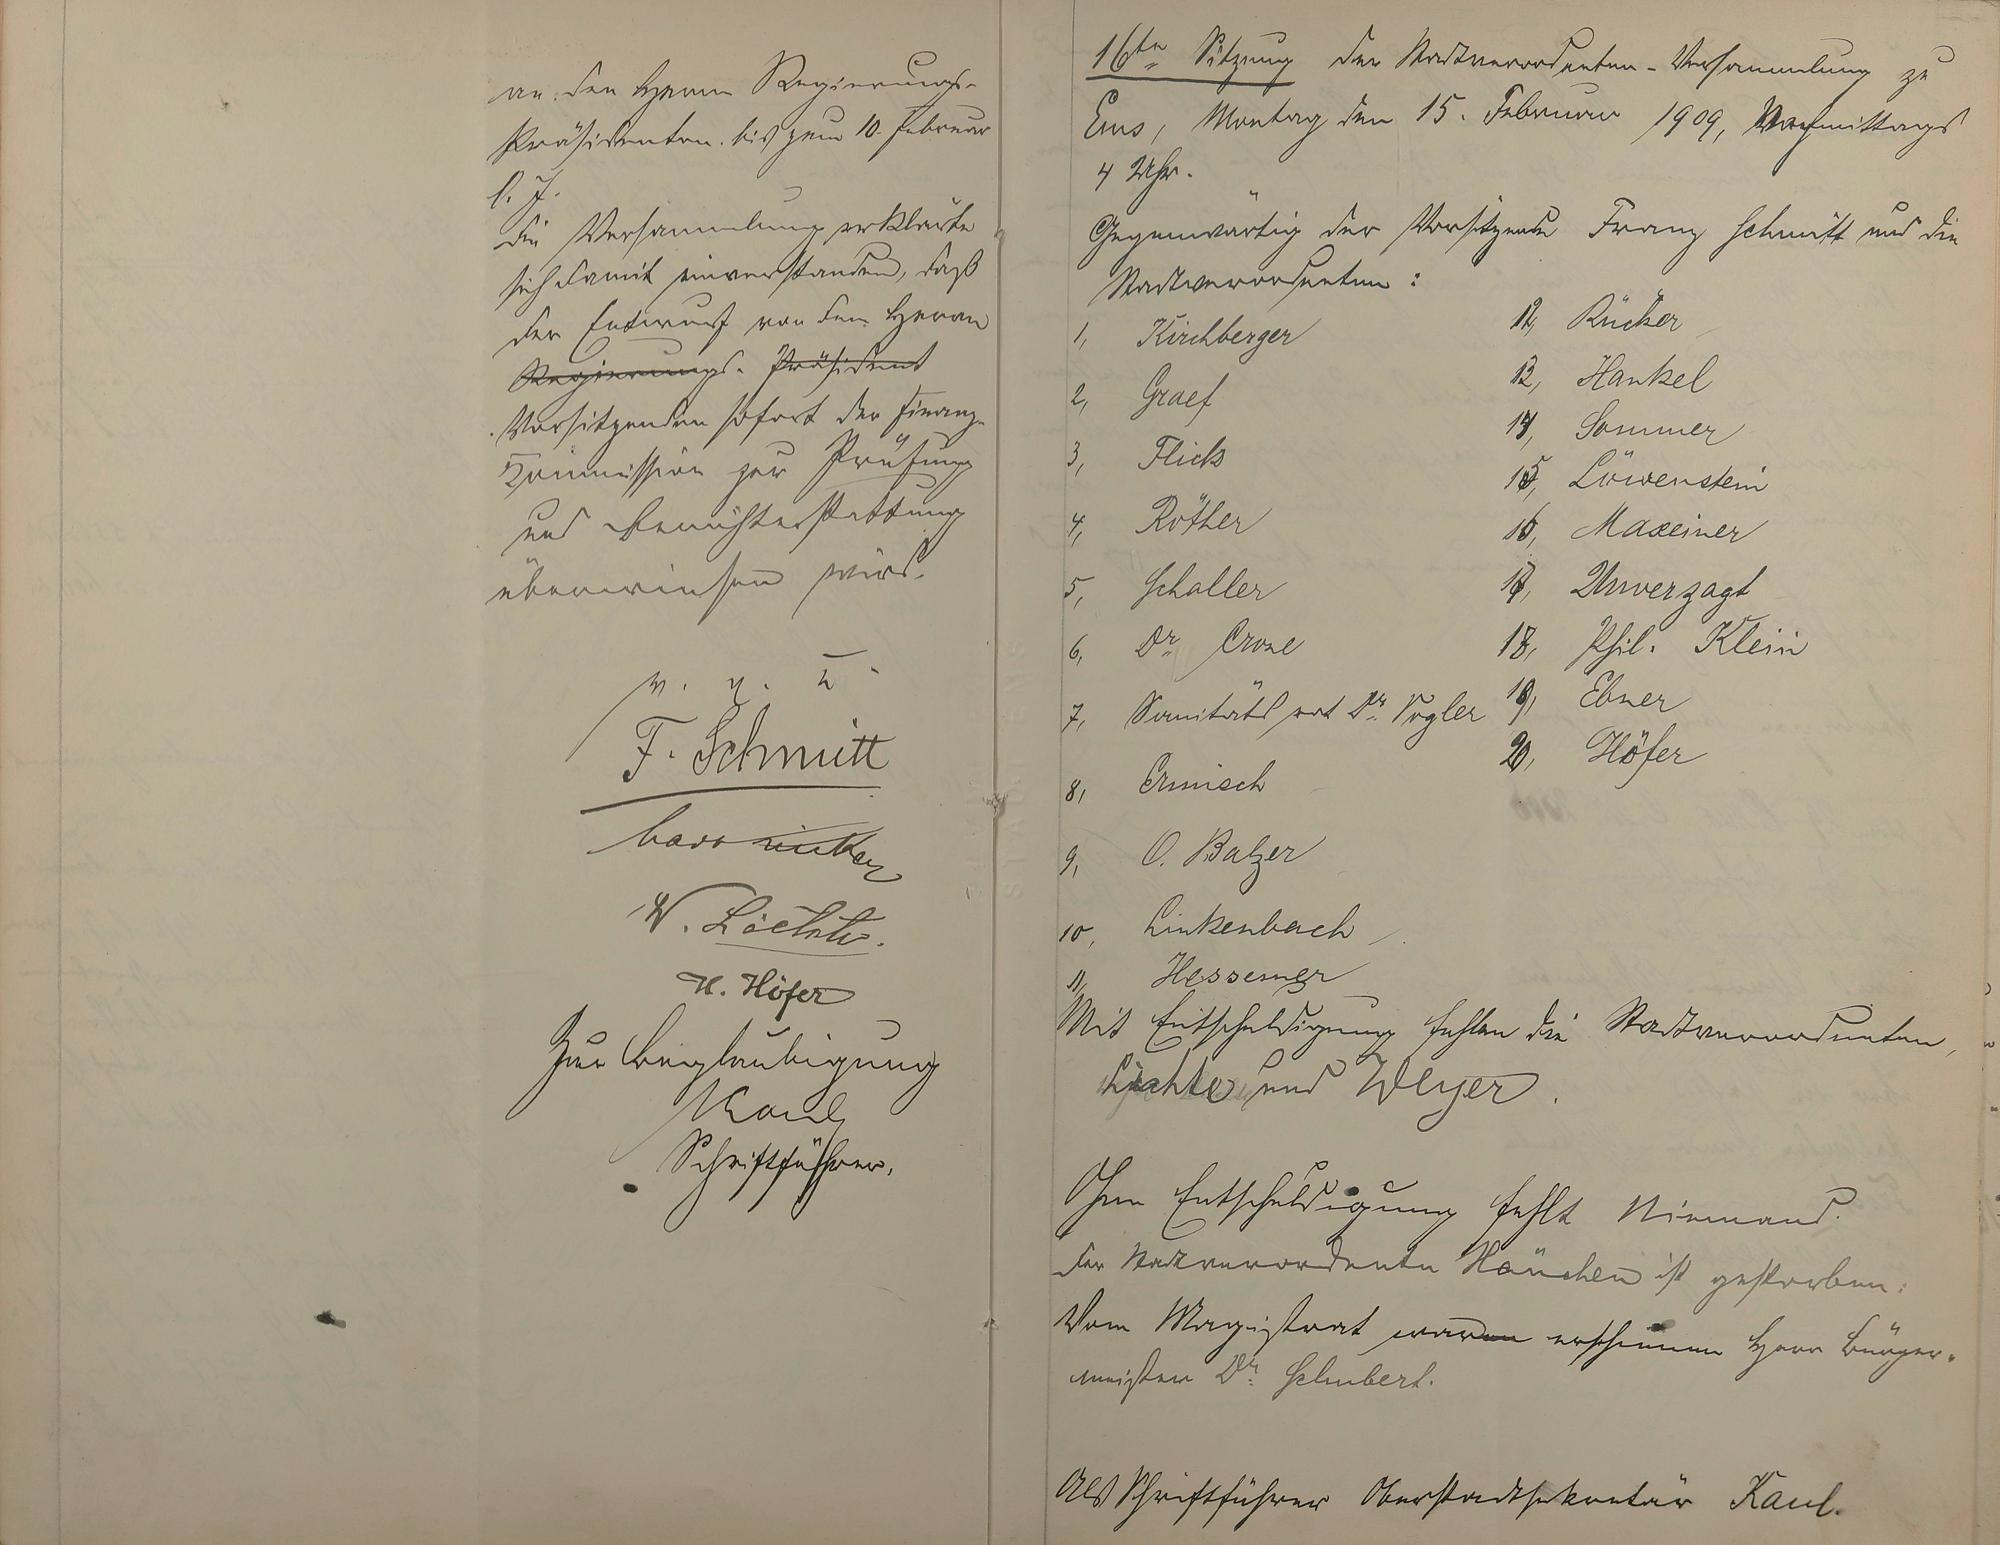 an den Herrn Regierungs-
Präsidenten bis zum 10. Februar
l. J.
Die Versammlung erklärte
sich damit einverstanden, daß
der Entwurf von dem Herrn
Regierungs-Präsident
Vorsitzenden sofort der Finanz-
Kommission zur Prüfung
und Berichterstattung
überwiesen wird.
v. g. u.
F. Schmitt
W. Löchte.
H. Höfer
Zur Beglaubigung
Kaul
Schriftführer.
16te Sitzung der Stadtverordneten-Versammlung zu
Ems, Montag den 15. Februar 1909, Nachmittags
4 Uhr.
Gegenwärtig der Vorsitzende Franz Schmitt und die
Stadtverordneten:
1, Kirchberger
2, Graef
3, Flick
4, Röther
5, Schaller
6, Dr. Crone
7, Sanitätsrat Dr. Vogler
8, Ermisch
9, O. Balzer
10, Linkenbach
11, Hessemer
12, Rücker
13, Hankel
14, Sommer
15, Löwenstein
16, Maxeiner
17, Unverzagt
18, Phil. Klein
19, Ebner
20, Höfer
Mit Entschuldigung fehlen die Stadtverordneten
Löchte und Weyer.
Ohne Entschuldigung fehlt Niemand.
Der Stadtverordnete Häuchen ist gestorben.
Vom Magistrat waren erschienen Herr Bürger-
meister Dr. Schubert.
Als Schriftführer Oberstadtsekretär Kaul.